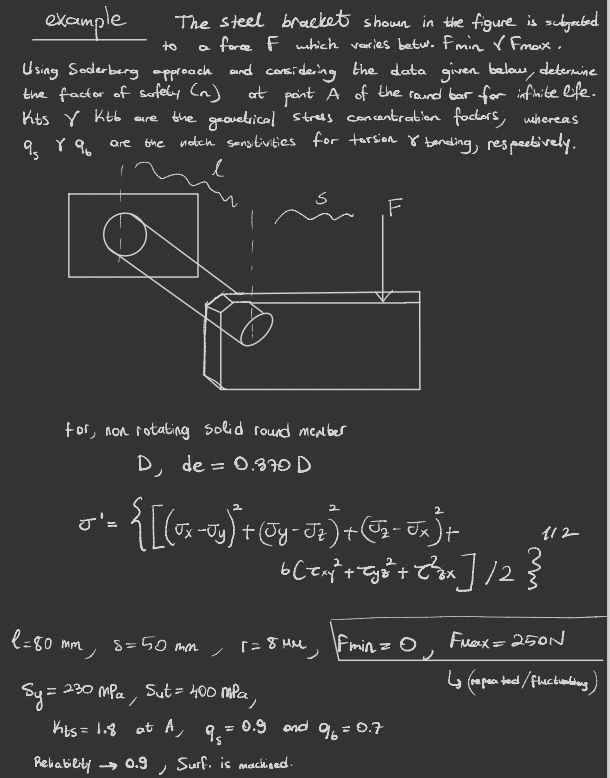 example The steel bracket shown in the figure is subjected
to a force F which varies betw. Fmin & Fmax.
Using Soderberg approach and considering the data given below, determine
the factor of safety (n) at point A of the round bar for infinite life.
Kts & Ktb are the geometrical stress concentration factors, whereas
qs & qb are the notch sensitivities for torsion & bending, respectively.
l
s
F
for, non rotating solid round member
D, de = 0.370 D
σ' = {[(σx-σy)²+(σy-σz)²+(σz-σx)²+
6(τxy²+τyz²+τ²zx]/2}^1/2
l=80 mm, s=50 mm, r=8 mm, Fmin = 0, Fmax = 250N
↳ (repeated/fluctuating)
Sy = 230 MPa, Sut = 400 MPa,
Kts = 1.8 at A, qs = 0.9 and qb = 0.7
Reliability → 0.9, Surf. is machined.